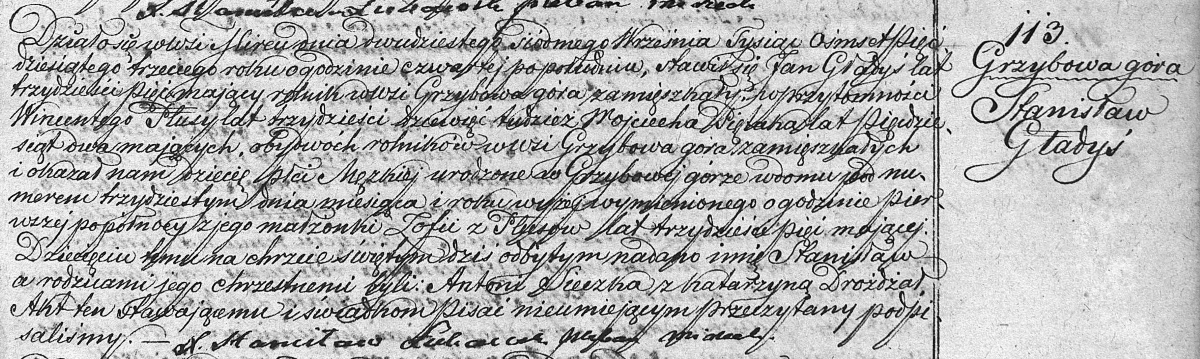 Działo się w wsi Mircu dnia dwudziestego siódmego Września Tysiąc Ośmset Pięć
dziesiątego trzeciego roku o godzinie czwartej popołudniu, stawił się Jan Gładyś lat
trzydzieści pięć mający rolnik w wsi Grzybowa góra zamieszkały w przytomności
Wincentego Plusy lat trzydzieści dziewięć tudzież Wojciecha lat pięćdzie
siąt dwa mających, obydwóch rolników w wsi Grzybowa góra zamieszkałych
i okazał nam dziecię płci Męzkiej urodzone w Grzybowej górze w domu pod nu-
merem trzydziestym, dnia miesiąca i roku wyżej wymienionego o godzinie pier-
wszej popołnocy z jego małżonki Zofii z Plusów lat trzydzieści pięć mającej.
Dziecięciu temu na chrzcie świętym dziś odbytym nadano imię Stanisław
a rodzicami jego chrzestnemi byli: Antoni z Katarzyną Drożdżał
Akt ten stawającemu i świadkom pisać nieumiejącym przeczytany podpi
saliśmy. — X. Stanisław
113.
Grzybowa góra
Stanisław
Gładyś